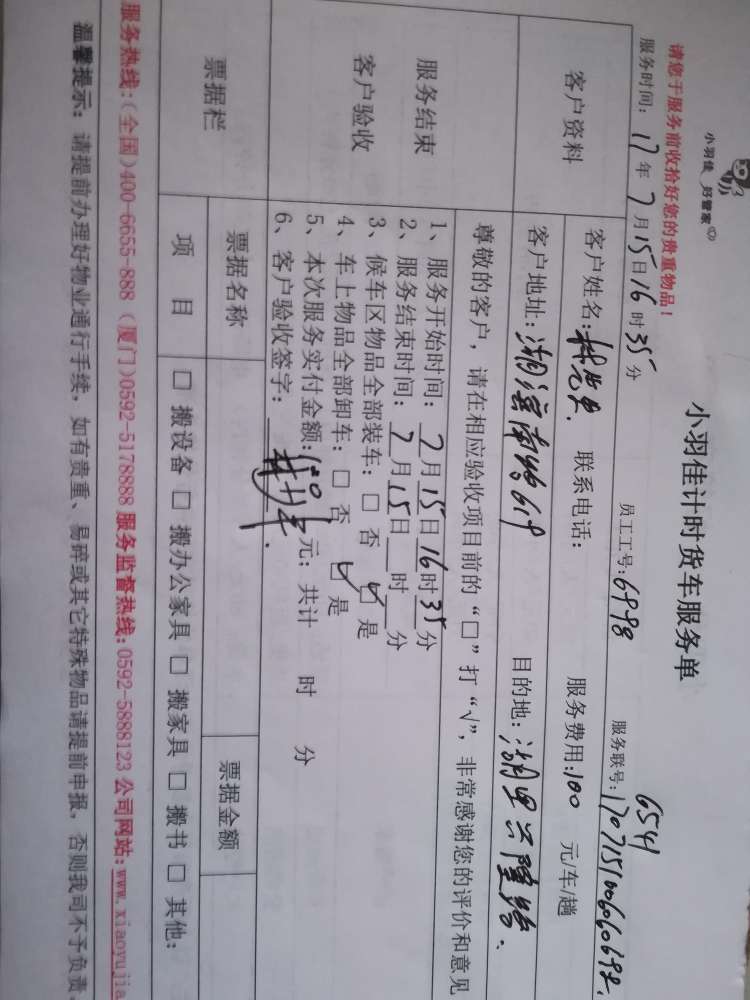 小羽佳 好管家
请您于服务前收拾好您的贵重物品！
小羽佳计时货车服务单
6541
服务时间：17年7月15日16时35分 员工工号：6998 服务联号：170715100606069
客户资料
客户姓名： 联系电话： 服务费用：100 元/车/趟
客户地址：湖滨南路619 目的地：湖里兴隆路、
服务结束
客户验收
尊敬的客户，请在相应验收项目前的“□”打“√”，非常感谢您的评价和意见
1、服务开始时间：7月15日16时35分
2、服务结束时间：7月15日 时 分
3、候车区物品全部装车：□ 否 ☑ 是
4、车上物品全部卸车：□ 否 ☑ 是
5、本次服务实付金额：150元；共计 时 分
6、客户验收签字：
票据栏
票据名称 票据金额
项 目 □ 搬设备 □ 搬办公家具 □ 搬家具 □ 搬书 □ 其他：
服务热线：(全国)400-6655-888 (厦门)0592-5178888 服务监督热线：0592-5888123 公司网站：www.xiaoyujia.
温馨提示：请提前办理好物业通行手续，如有贵重、易碎或其它特殊物品请提前申报，否则我司不予负责。